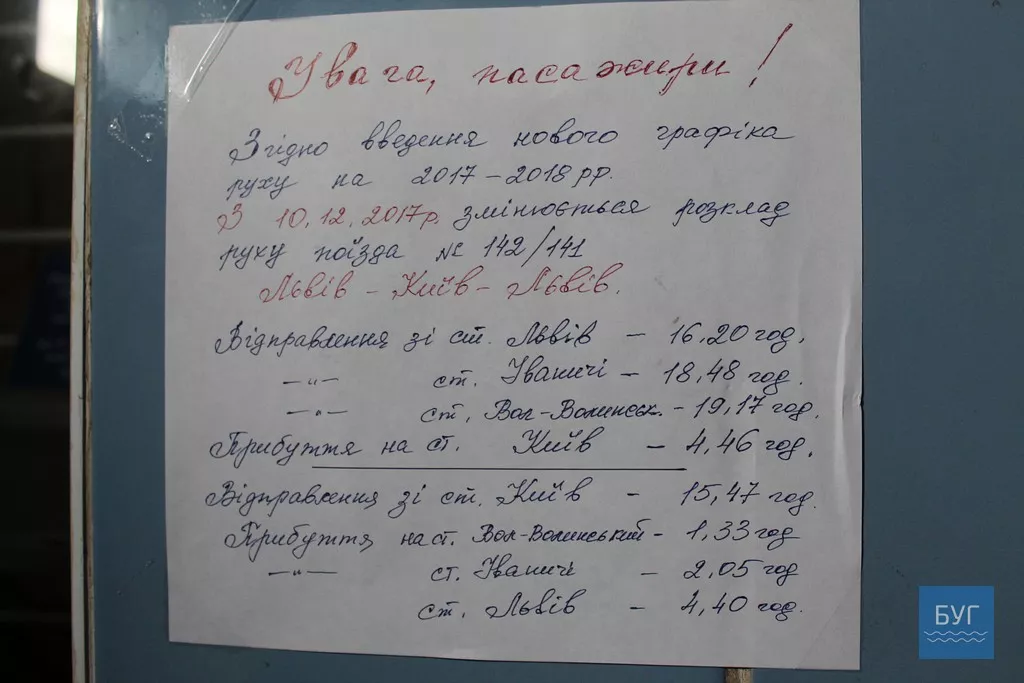 Увага, пасажири!
Згідно введення нового графіка
руху на 2017-2018 рр.
З 10.12.2017р. змінюється розклад
руху поїзда № 142/141
Львів - Київ - Львів.
Відправлення зі ст. Львів - 16.20 год.
—"— ст. Іваничі - 18,48 год.
—"— ст. Вол-Волинськ. - 19,17 год.
Прибуття на ст. Київ - 4,46 год.
Відправлення зі ст. Київ - 15,47 год.
Прибуття на ст. Вол-Волинський - 1,33 год
—"— ст. Іваничі - 2,05 год
ст. Львів - 4,40 год.
БУГ